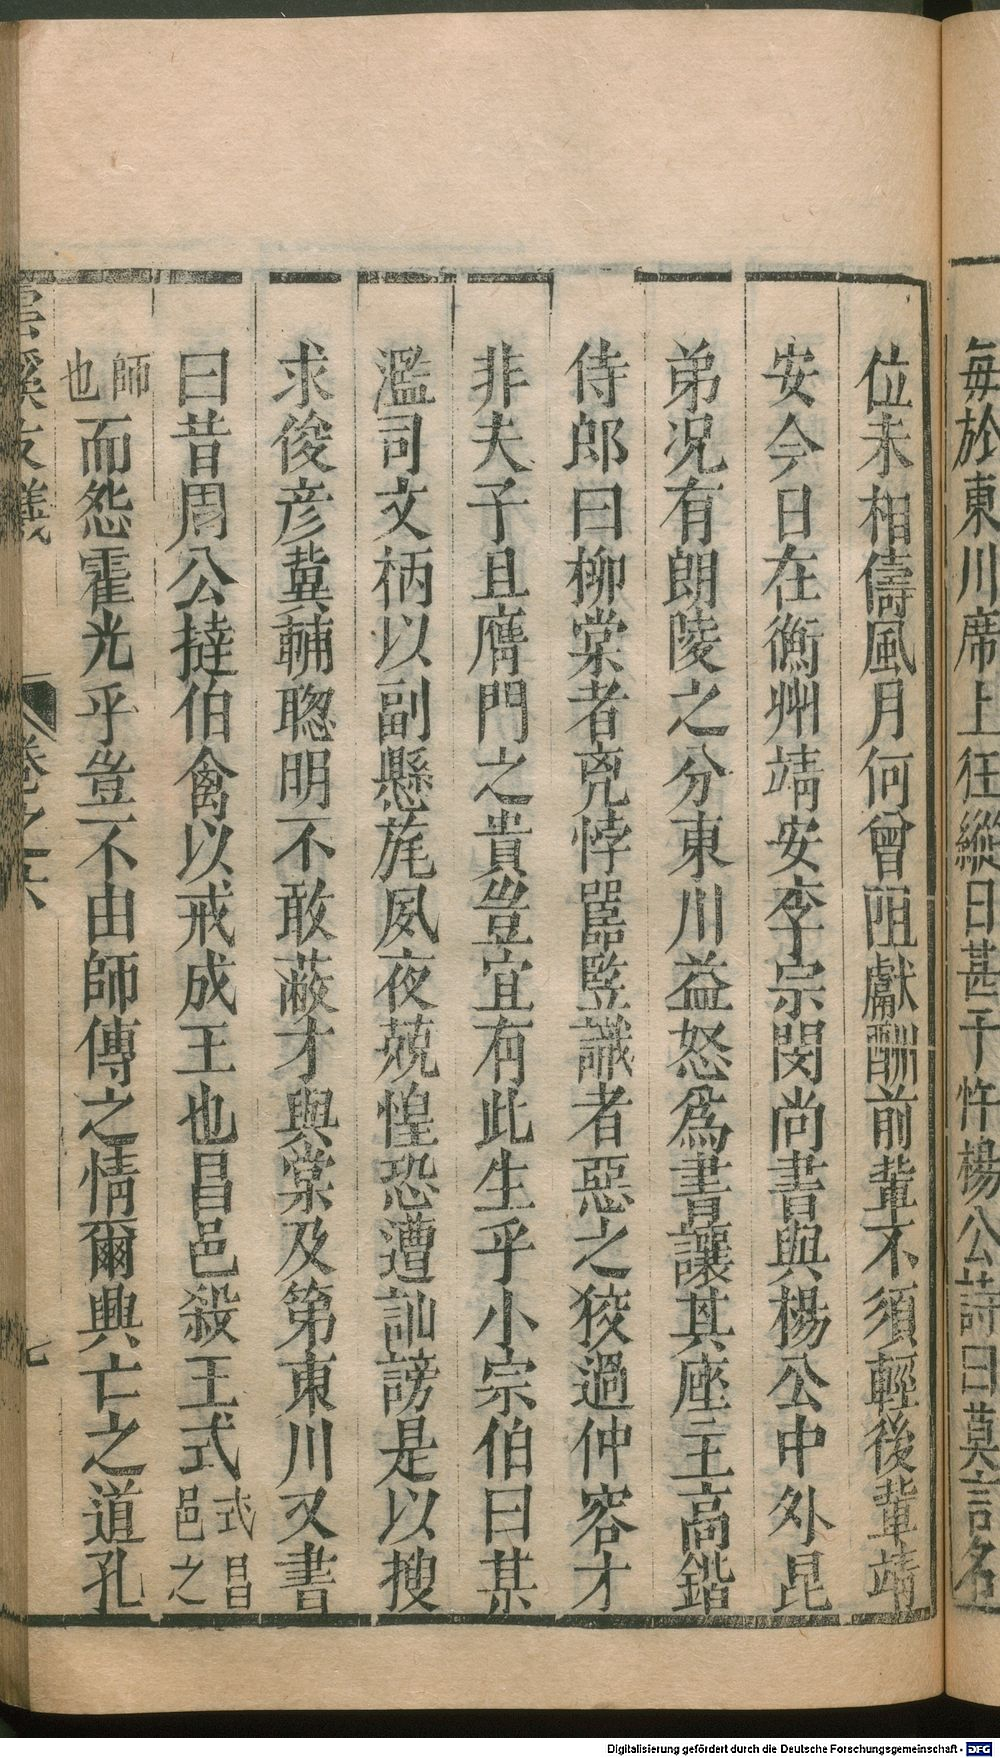 每於東川席上狂縱日甚干忤楊公詩曰莫言名
位未相儔風月何曾阻獻酬前輩不須輕後輩靖
安今日在衡州靖安李宗閔尚書與楊公中外昆
弟况有朗陵之分東川益怒爲書讓其座主高鍇
侍郎曰柳棠者兇悖嚚竪識者惡之狡過仲容才
非夫子且膺門之貴豈宜有此生乎小宗伯曰某
濫司文柄以副懸旄夙夜兢惶恐遭訕謗是以搜
求俊彦冀輔聰明不敢蔽才與棠及第東川又書
曰昔周公撻伯禽以戒成王也昌邑殺王式式昌
邑之
師
也而怨霍光乎豈不由師傅之情爾興亡之道孔
雲溪友議
卷之六
七
Digitalisierung gefördert durch die Deutsche Forschungsgemeinschaft - DFG